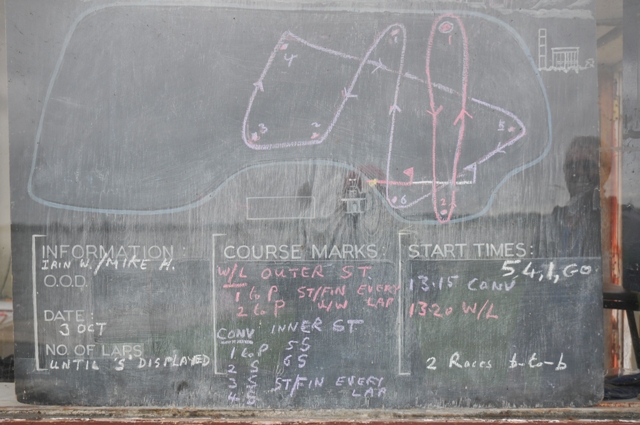 1
4
1
3
2
5
6
2
INFORMATION:
IAIN W./MIKE H.
O.O.D.
DATE:
3 OCT
NO. OF LAPS
UNTIL 'S' DISPLAYED
COURSE MARKS:
W/L OUTER ST.
1 to P ST/FIN EVERY
2 to P W/W LAP
CONV INNER ST
1 to P 5S
2 S 6S
3 S ST/FIN EVERY
4 S LAP
START TIMES:
5,4,1,GO.
13:15 CONV
13:20 W/L
2 Races b-to-b